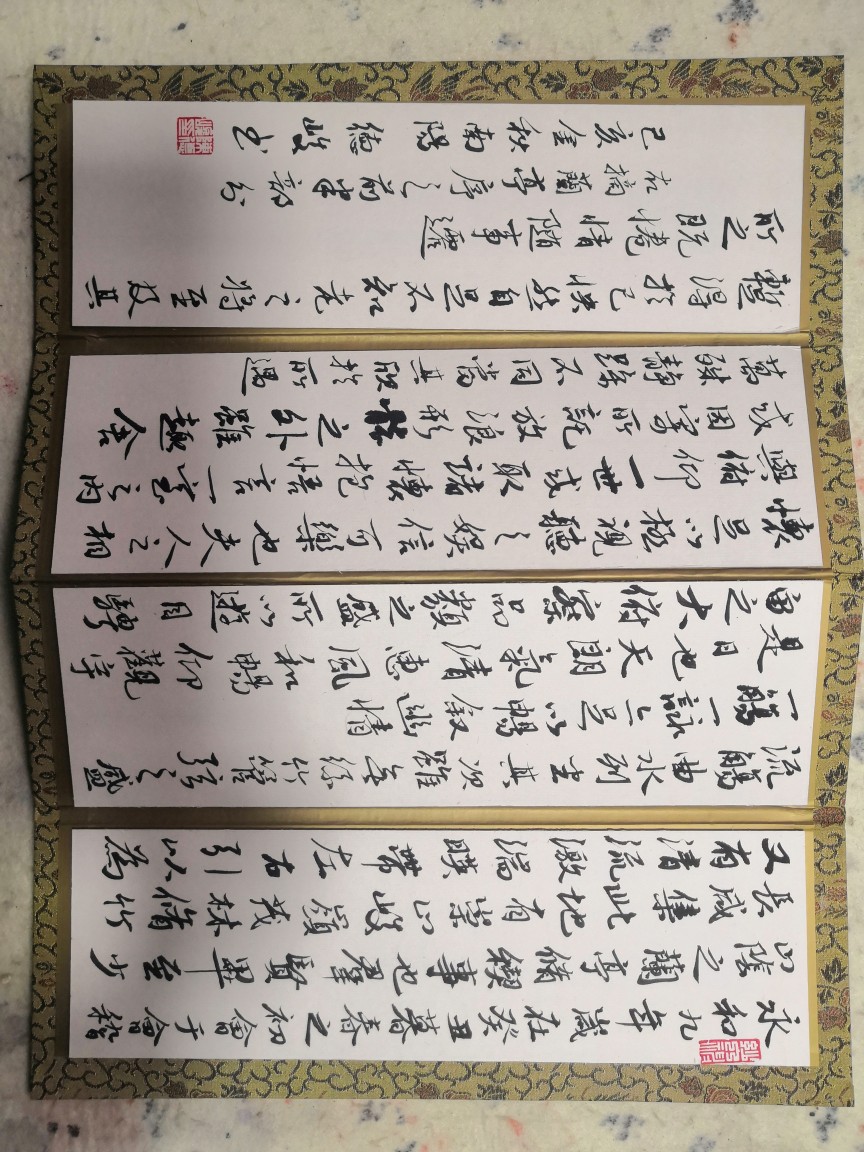 永和九年歲在癸丑暮春之初會于會稽
山陰之蘭亭脩禊事也羣賢畢至少
長咸集此地有崇山峻嶺茂林脩竹
又有清流激湍暎帶左右引以為
流觴曲水列坐其次雖無絲竹管弦之盛
一觴一詠亦足以暢敘幽情
是日也天朗氣清惠風和暢仰觀宇
宙之大俯察品類之盛所以遊目騁
懷足以極視聽之娛信可樂也夫人之相
與俯仰一世或取諸懷抱悟言一室之內
或因寄所託放浪形骸之外雖趣舍
萬殊靜躁不同當其欣於所遇
暫得於己快然自足不知老之將至及其
所之既惓情隨事遷
右摘蘭亭序之前中部分
己亥金秋南陽德峻書